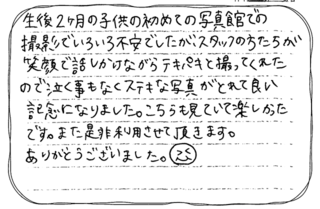 生後2ヶ月の子供の初めての写真館での
撮影でいろいろ不安でしたが、スタッフの方たちが
笑顔で話しかけながらテキパキと撮ってくれた
ので泣く事もなくステキな写真がとれて良い
記念になりました。こちらも見ていて楽しかった
です。また是非利用させて頂きます。
ありがとうございました。